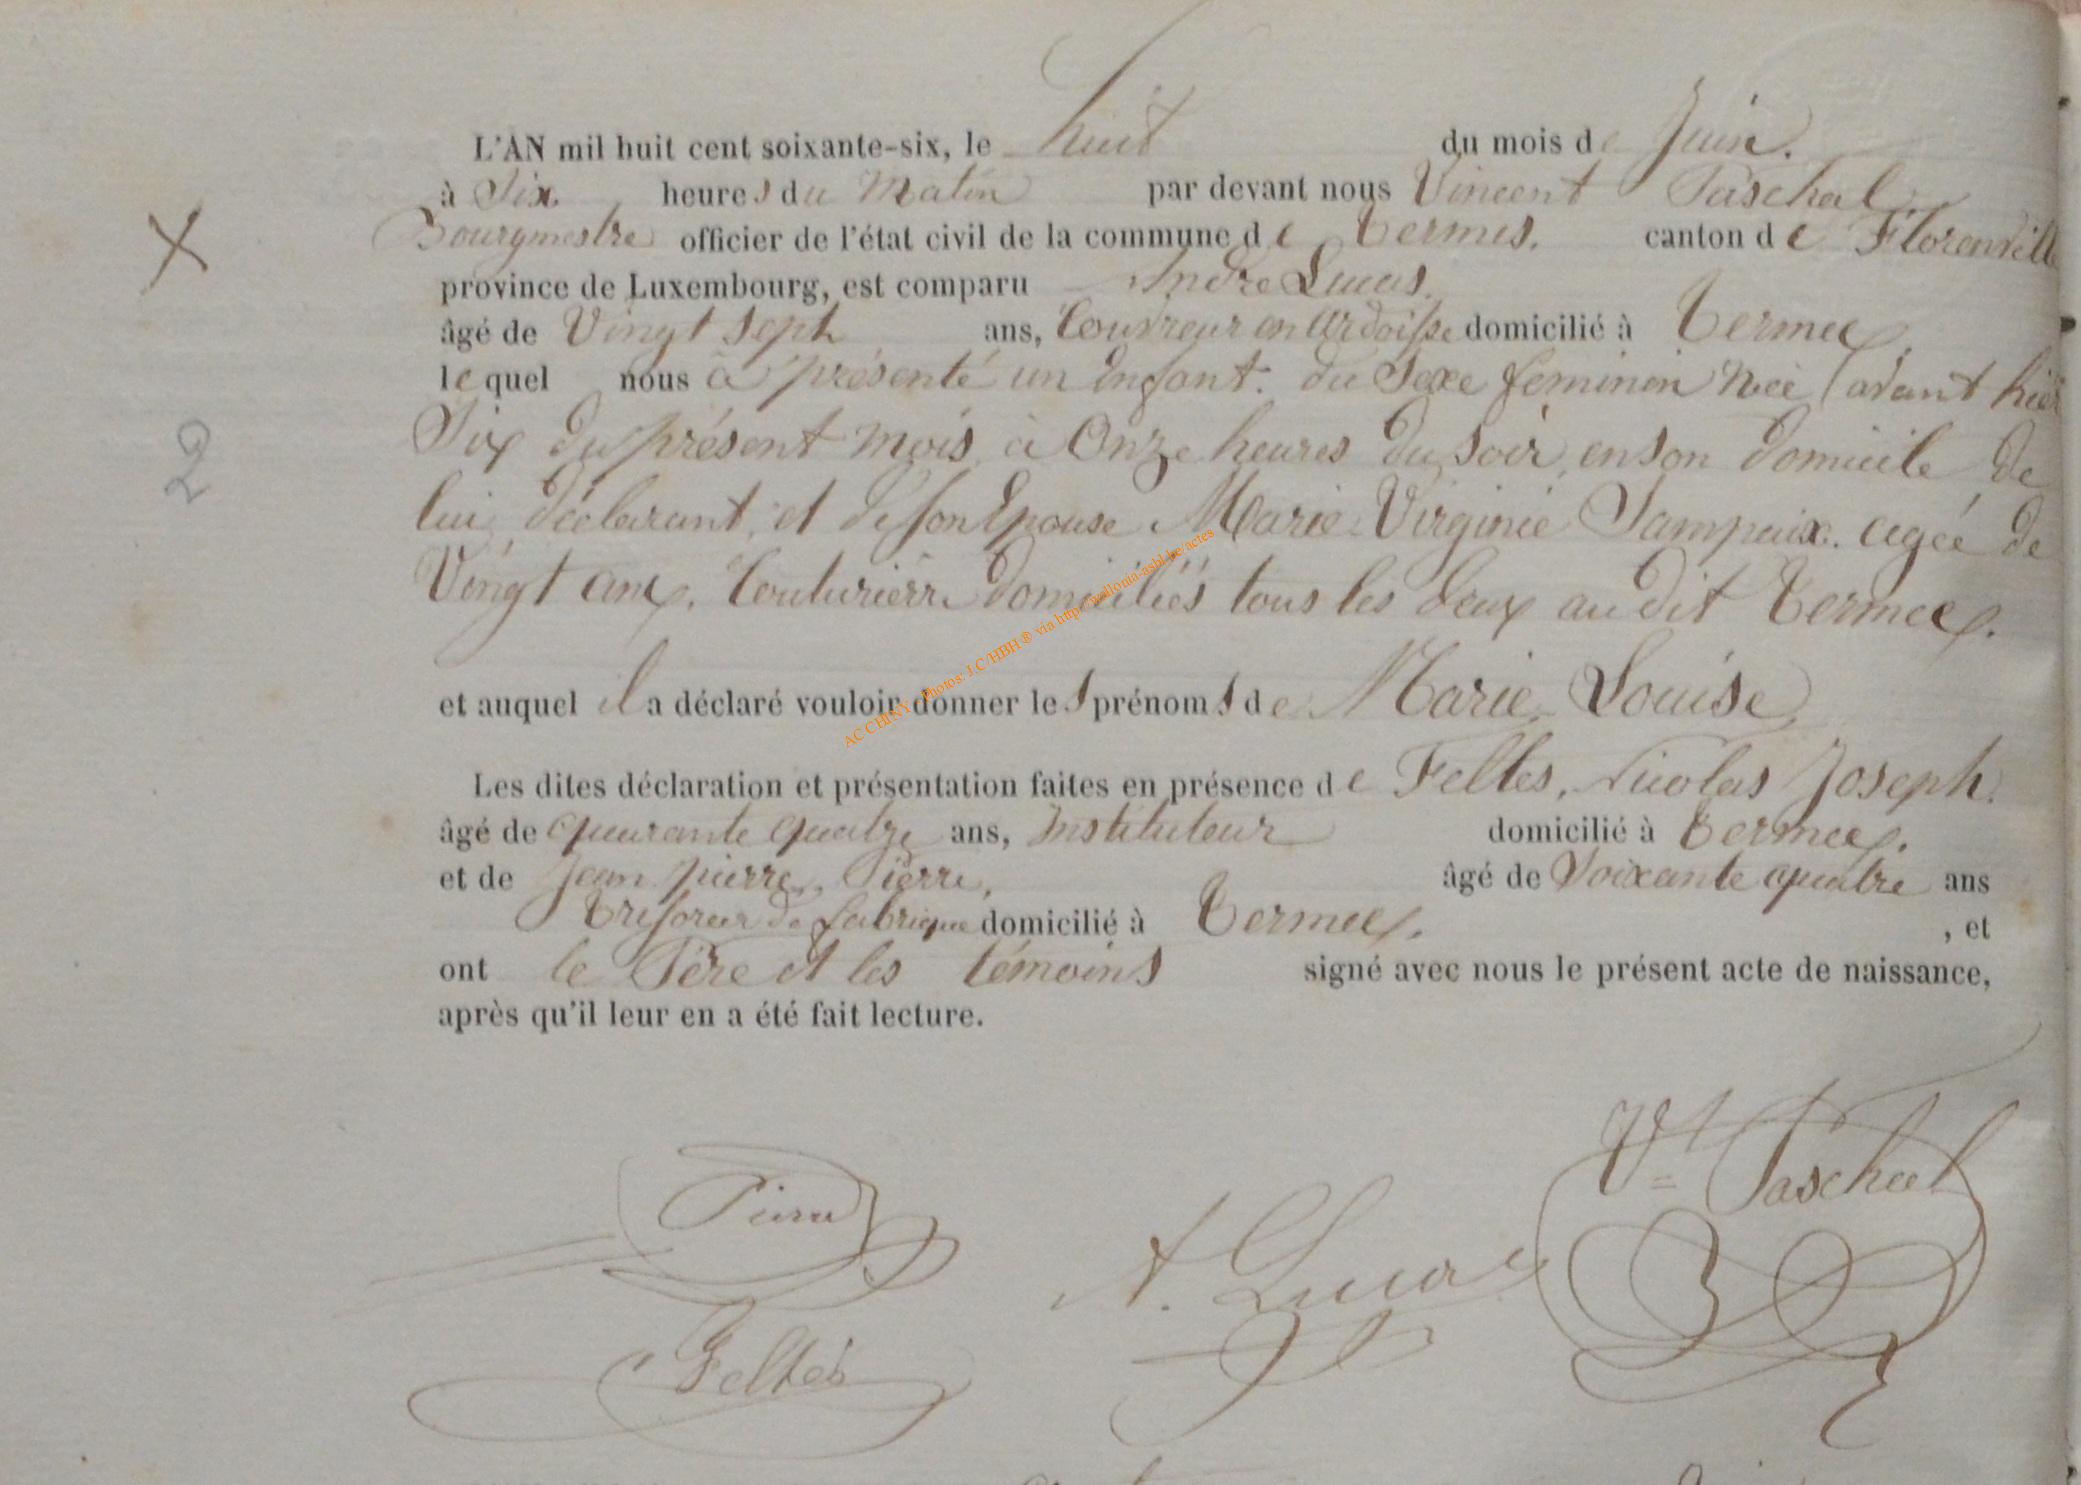 L'AN mil huit cent soixante-six, le huit du mois de Juin.
à Six heures du Matin par devant nous Vincent Paschal
Bourgmestre officier de l'état civil de la commune de Termes. canton de Florenville
province de Luxembourg, est comparu André Lucas.
âgé de Vingt Sept ans, Couvreur en Ardoisse domicilié à Termes
X
lequel nous à présenté un Enfant. du Sexe feminin née avant hier
Six du présent mois à Onze heures du Soir, en son domicile de
2
lui déclarant, et de son Epouse Marie-Virginie Sampaix. agée de
Vingt ans, Couturière domiciliés tous les deux au dit Termes.
et auquel il a déclaré vouloir donner les prénoms de Marie-Louise
AC CHINY - Photos: J.C/HBH® via http://wallonia-asbl.be/actes
Les dites déclaration et présentation faites en présence de Feltes, Nicolas Joseph.
âgé de quarante quatre ans, Instituteur domicilié à Termes.
et de Jean-pierre Pierre, âgé de Soixante quatre ans
Trésorer de fabrique domicilié à Termes. , et
ont le Père et les témoins signé avec nous le présent acte de naissance,
après qu'il leur en a été fait lecture.
Vt Paschal
Pierre
A. Lucas
Feltes